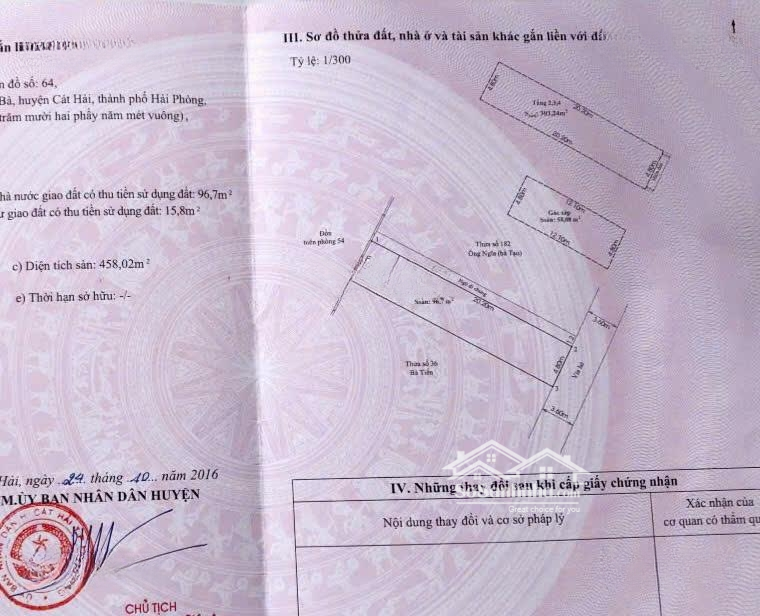 n đồ số: 64,
Bà, huyện Cát Hải, thành phố Hải Phòng,
trăm mười hai phẩy năm mét vuông),
hà nước giao đất có thu tiền sử dụng đất: 96,7m²
ư giao đất có thu tiền sử dụng đất: 15,8m²
c) Diện tích sàn: 458,02m²
e) Thời hạn sở hữu: -/-
Hải, ngày 29 tháng 10 năm 2016
TM.ỦY BAN NHÂN DÂN HUYỆN
CHỦ TỊCH
III. Sơ đồ thửa đất, nhà ở và tài sản khác gắn liền với đấ
Tỷ lệ: 1/300
4.80m
Tầng 2,3,4
20.20m
20.90m
4.80m
4.80m
12.10m
Gác xép
12.10m
4.80m
Đồn
biên phòng 54
Thửa số 182
Ông Nghĩa (bà Tạo)
Ngõ đi chung
20.20m
96,7 m²
1
2
3
4.80m
3.60m
Vỉa hè
3.60m
Thửa số 36
Bà Tiến
IV. Những thay đổi sau khi cấp giấy chứng nhận
Nội dung thay đổi và cơ sở pháp lý
Xác nhận của
cơ quan có thẩm qu
Great choice for you